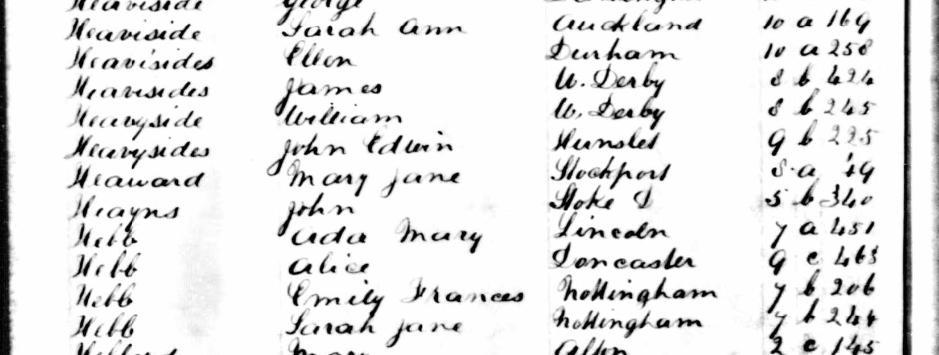 Heaviside George
Heaviside Sarah Ann Auckland 10 a 169
Heavisides Ellen Durham 10 a 258
Heavisides James W. Derby 8 b 424
Heavyside William W. Derby 8 b 245
Heavysides John Edwin Hunslet 9 b 225
Heaward Mary Jane Stockport 8 a 49
Heayns John Stoke D 5 b 340
Hebb Ada Mary Lincoln 7 a 451
Hebb Alice Doncaster 9 c 463
Hebb Emily Frances Nottingham 7 b 206
Hebb Sarah Jane Nottingham 7 b 244
Mary Alton 2 c 145